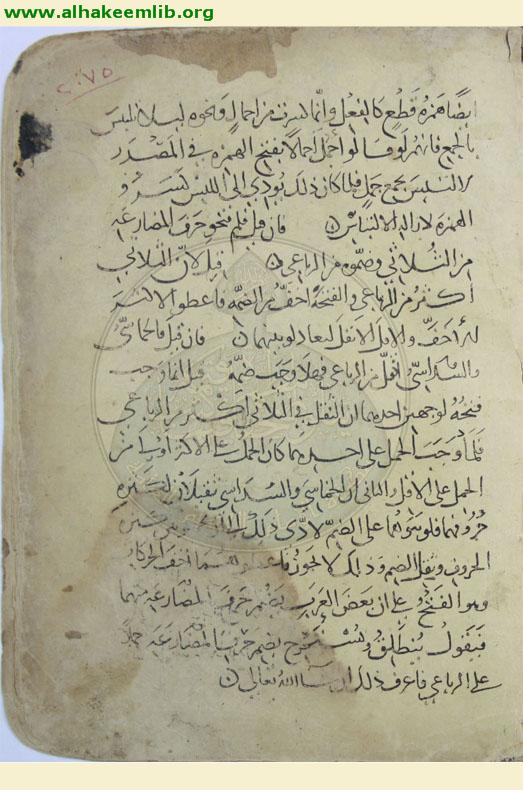 www.alhakeemlib.org
٢٠٧٥
ايضا همزه قطع كالفعل وانما كسرت من اجمال ونحوه ليلا يلتبس
بالجمع فانهم لو قالوا اجمل اجمالا بفتح الهمزه في المصدر
لالتبس بجمع جمل فلما كان ذلك يودي الى اللبس كسروا
الهمزه لازاله الالتباس فان قيل فلم فتحو حرف المضارعه
من الثلاثي وضموه من الرباعي قيل لان الثلاثي
اكثر من الرباعي والفتحه اخف من الضمه فاعطو الاكثر
الاخف والاقل الاثقل ليعادلو بينهما فان قيل فالخماسي
والسداسي اقل من الرباعي فهلا وجب ضمه قيل انما وجب
فتحه لوجهين احدهما ان النقل في الثلاثي اكثر من الرباعي
فلما وجب الحمل على احدهما كان الحمل على الاكثر اولى من
الحمل على الاقل والثاني ان الخماسي والسداسي ثقيلان لكثره
حروفهما فلو بنوهما على الضم لادى ذلك الى ان يجمعوا بين كثره
الحروف وثقل الضم وذلك لا يجوز فاعطوهما اخف الحركات
وهو الفتح على ان بعض العرب يضم حرف المضارعه منهما
فيقول يُنطلق ويُستخرج بضم حرف المضارعه حملا
على الرباعي فاعرف ذلك ان شا الله تعالى